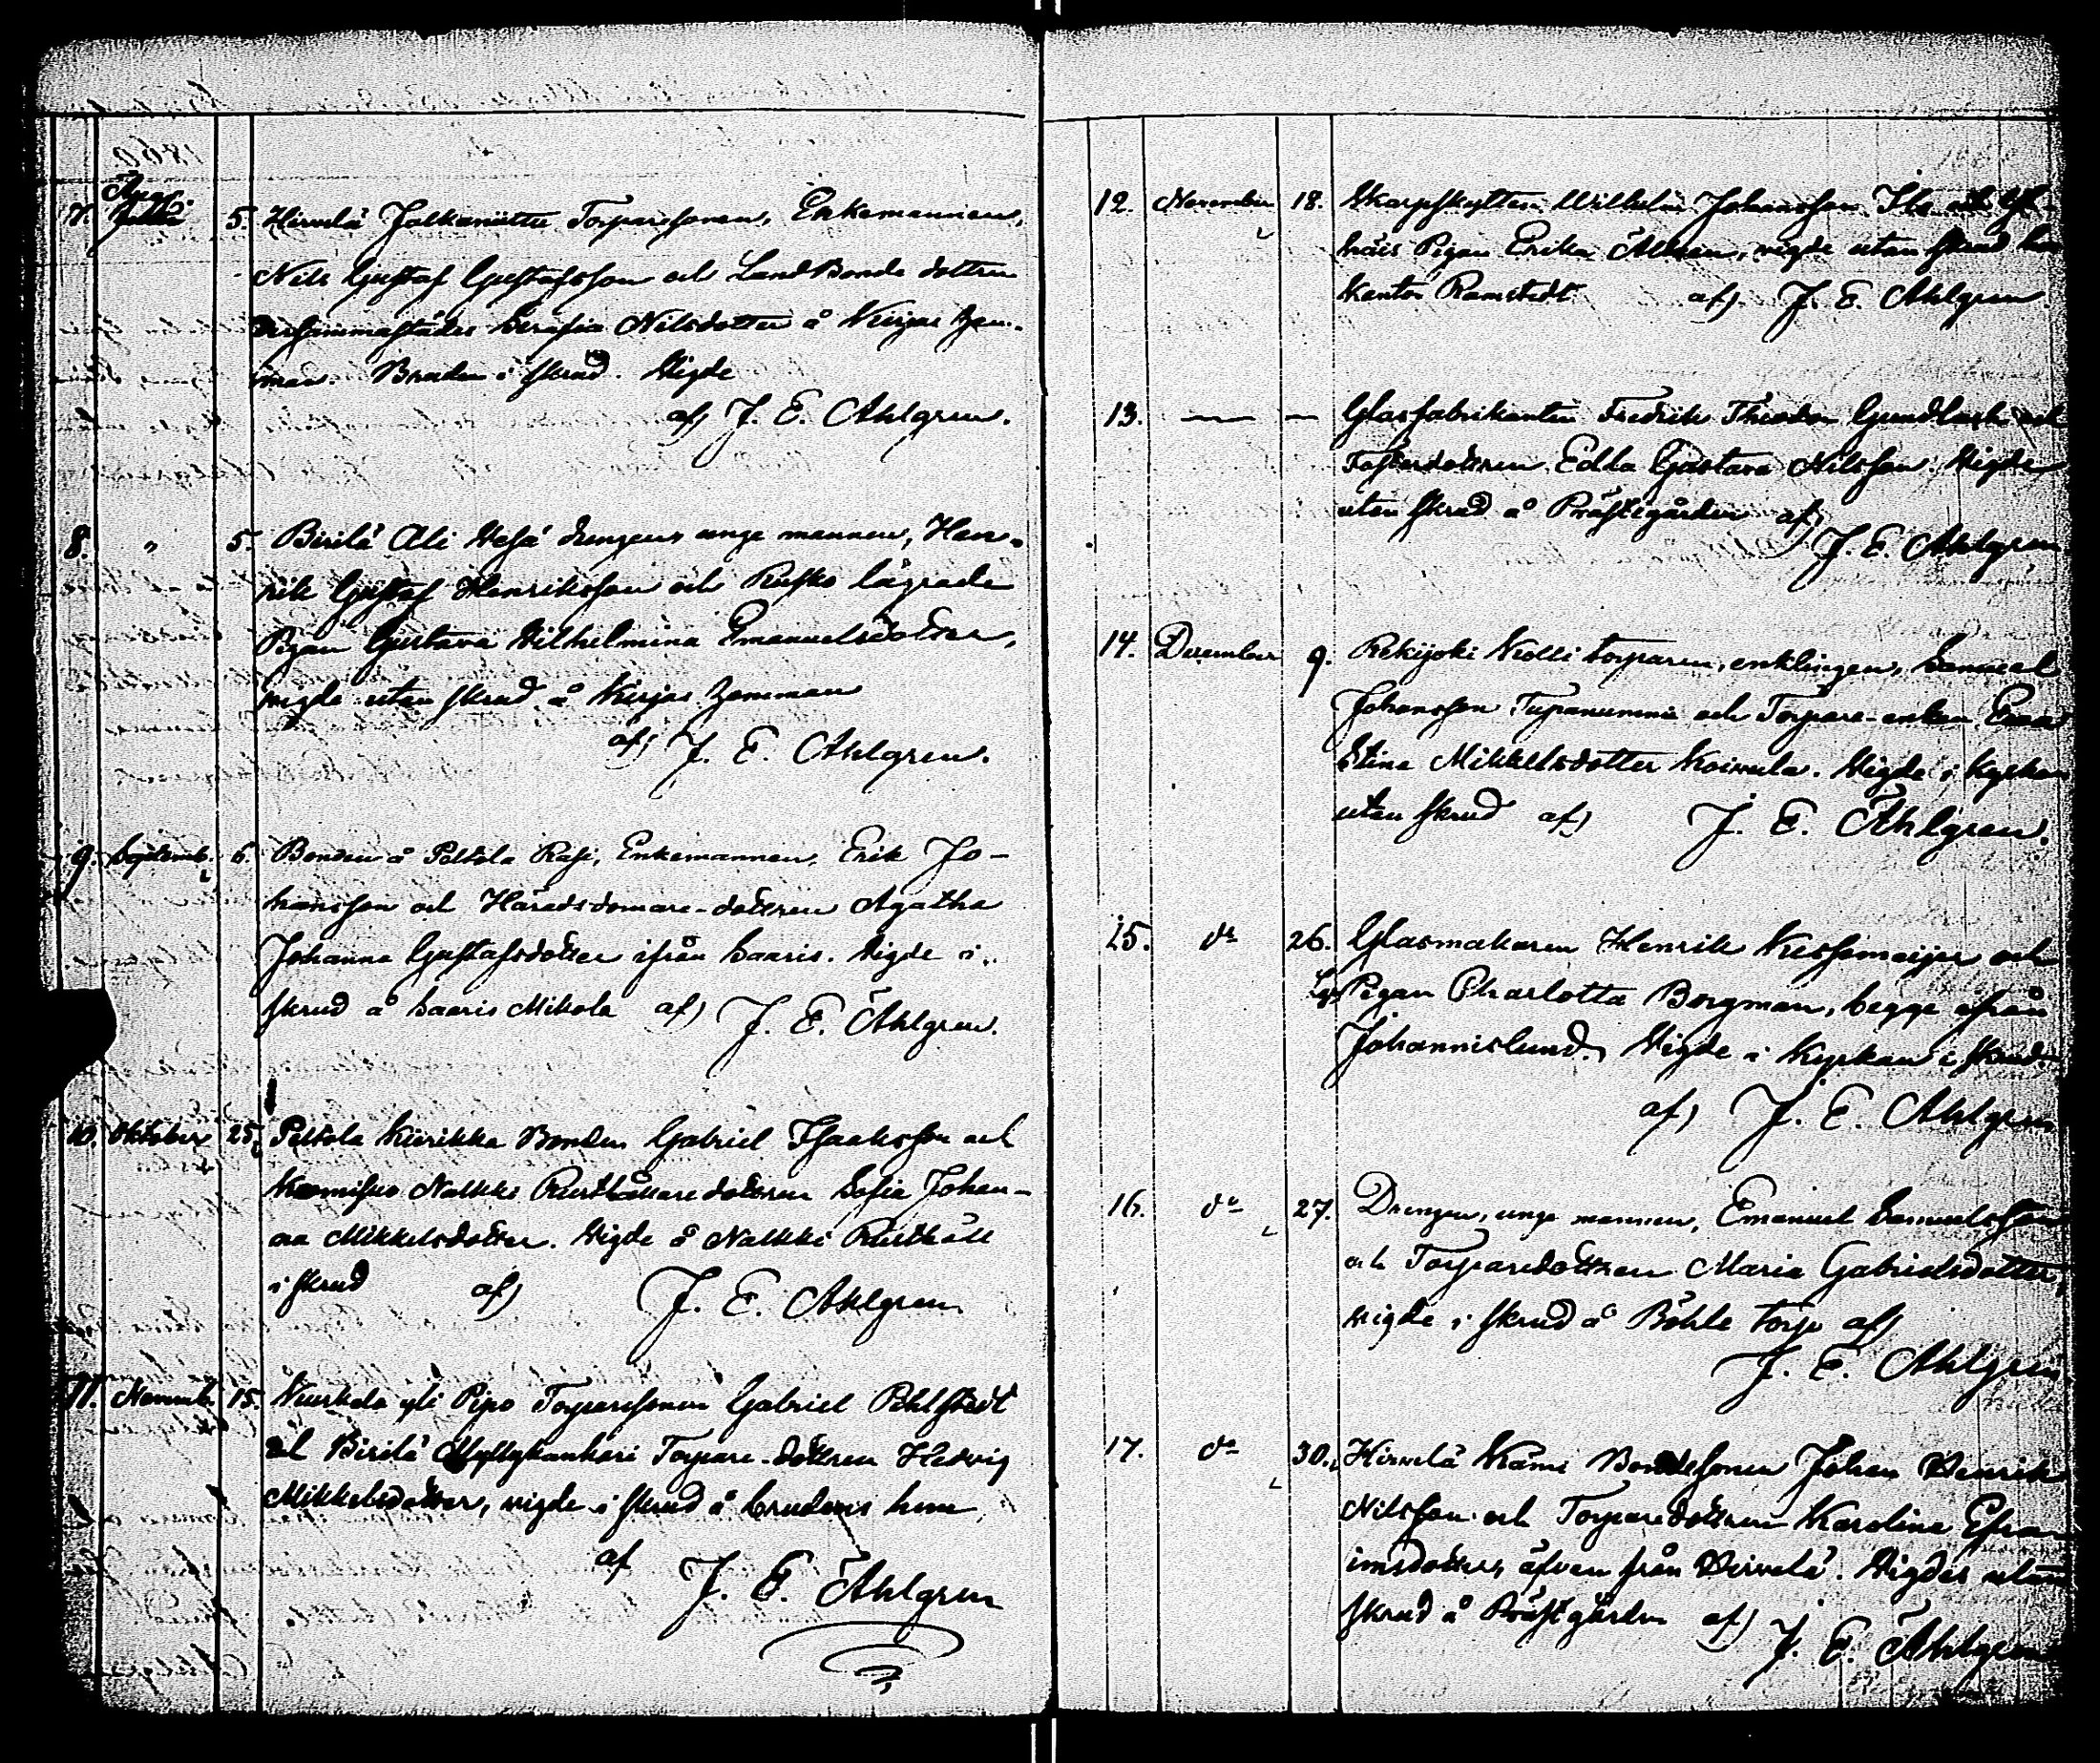 Aug.
7. 5. Hirvelä Jalkaniittu Torparesonen, Enkemannen,
Nils Gustaf Gustafsson och Landbonde dottren
dersammastädes Serafia Nilsdotter å Kirjas hem-
man. Bruden i skrud. Vigde
af) J. E. Ahlgren.
8. " 5. Birilä Ali Hesä drengens unge mannen, Hen-
rik Gustaf Henriksson och Rusko lägrade
Pigan Gustava Vilhelmina Emanuelsdotter,
vigde utan skrud å Kirjas hemman
af) J. E. Ahlgren.
9. Septemb. 6. Bonden å Peltola Rasi, Enkemannen, Erik Jo-
hansson och Häradsdomare-dottren Agatha
Johanna Gustafsdotter ifrån Saaris. Vigde i
skrud å Saaris Mikola af) J. E. Ahlgren.
10. Oktober 25. Peltola Kiirikka Bonden Gabriel Isaaksson och
Nalkki Rusthållaredottren Sofia Johan-
na Mikkelsdotter. Vigde å Nalkki Rusthåll
i skrud af) J. E. Ahlgren
11. Novemb. 15. Kuskela yli Pipo Torparesonen Gabriel Pohlstedt
och Birilä Myllykankari Torpare-dottren Hedvig
Mikkelsdotter, vigde i skrud å brudens hem
af J. E. Ahlgren
12. November 18. Skarpskytten Wilhelm Johansson
Pigan Erika, vigde utan skrud hos
Kantor Ramstedt af) J. E. Ahlgren
13. — — Glasfabrikanten Fredrik Theodor Gundlach och
Fosterdottren Edla Gustava Nilsson. Vigde
utan skrud å Prästegården af)
J. E. Ahlgren
14. December 9. Rekijoki Knolli torparen, enklingen, Samuel
Johansson Tupanummi och Torpare-enkan Eva
Stina Mikkelsdotter Koivula. Vigde i Kyrkan
utan skrud af) J. E. Ahlgren.
15. do 26. Glasmakaren Henrik Kessemeijer och
Lgr Pigan Charlotta Borgman, begge ifrån
Johannislund. Vigde i Kyrkan i skrud.
af) J. E. Ahlgren
16. do 27. Drengen, unge mannen, Emanuel Samuelsson
och Torparedottren Maria Gabrielsdotter,
vigde i skrud å Böhle torp af)
J. E. Ahlgren
17. do 30. Hirvelä Kämi Bondesonen Johan Henrik
Nilsson och Torparedottren Karolina Efra-
imsdotter, äfven från Hirvelä. Vigdes utan
skrud å Prästgården af) J. E. Ahlgren